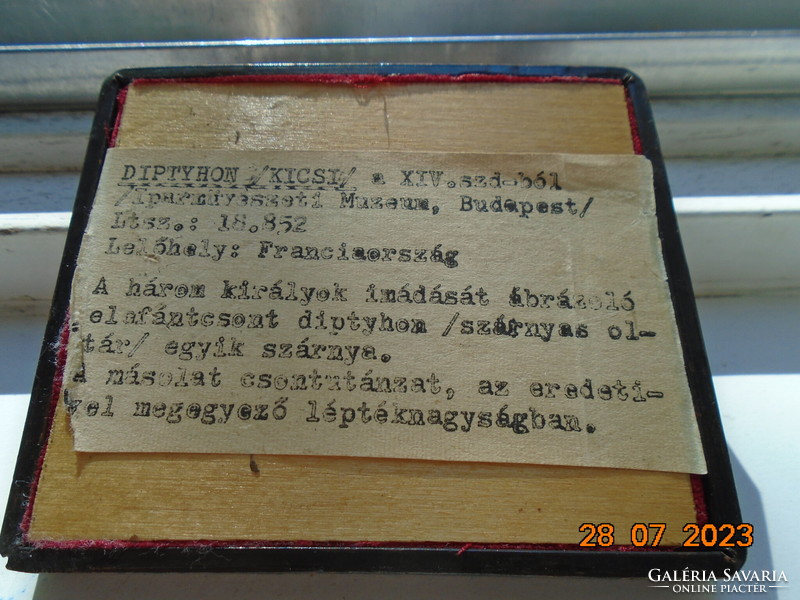 DIPTYHON /KICSI/ a XIV.szd-ból
/Iparművészeti Muzeum, Budapest/
Ltsz.: 18.852
Lelőhely: Franciaország
A három királyok imádását ábrázoló
elafántcsont diptyhon /szárnyas ol-
tár/ egyik szárnya.
A másolat csontutánzat, az eredeti-
vel megegyező léptéknagyságban.
28 07 2023
GALÉRIA SAVARIA
ONLINE PIACTÉR